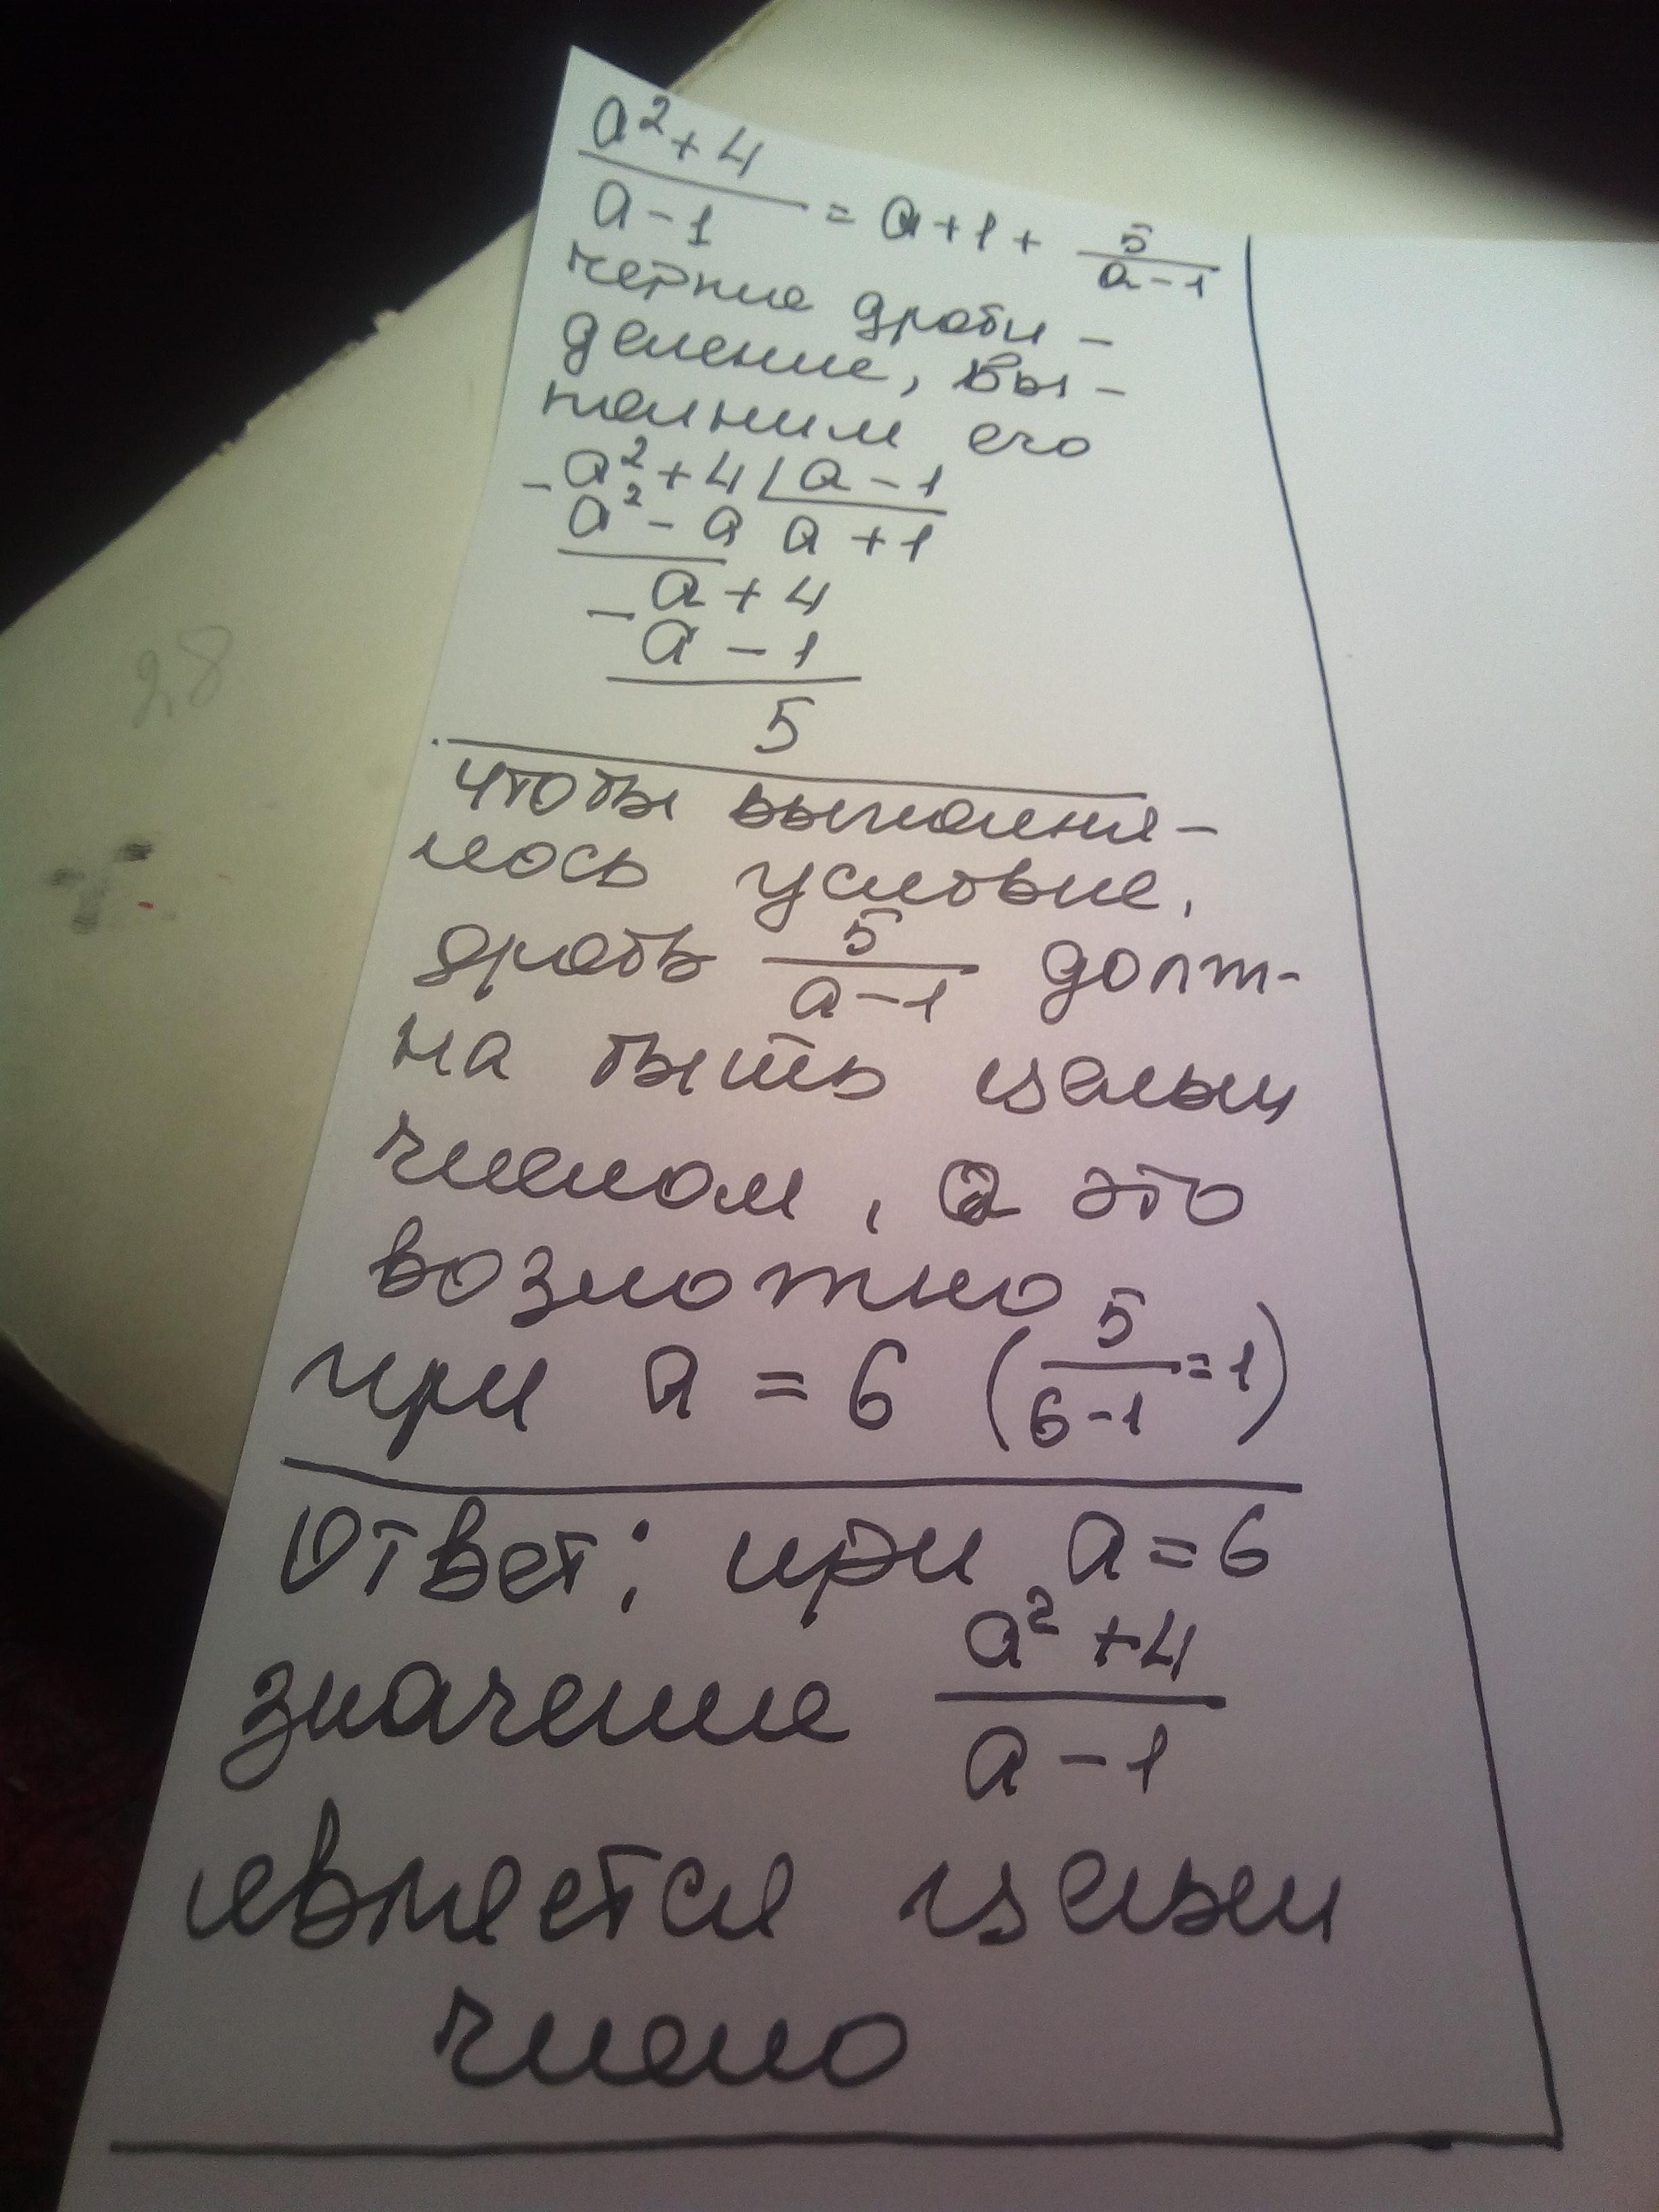 a² + 4 / a - 1 = a + 1 + 5 / a - 1
черта дроби -
деление, вы-
полним его
- a² + 4 | a - 1
a² - a a + 1
- a + 4
a - 1
5
чтобы выполня-
лось условие,
дробь 5 / a - 1 долж-
на быть целым
числом, а это
возможно
при a = 6 (5 / 6 - 1 = 1)
Ответ: при a = 6
значение a² + 4 / a - 1
является целым
число
28